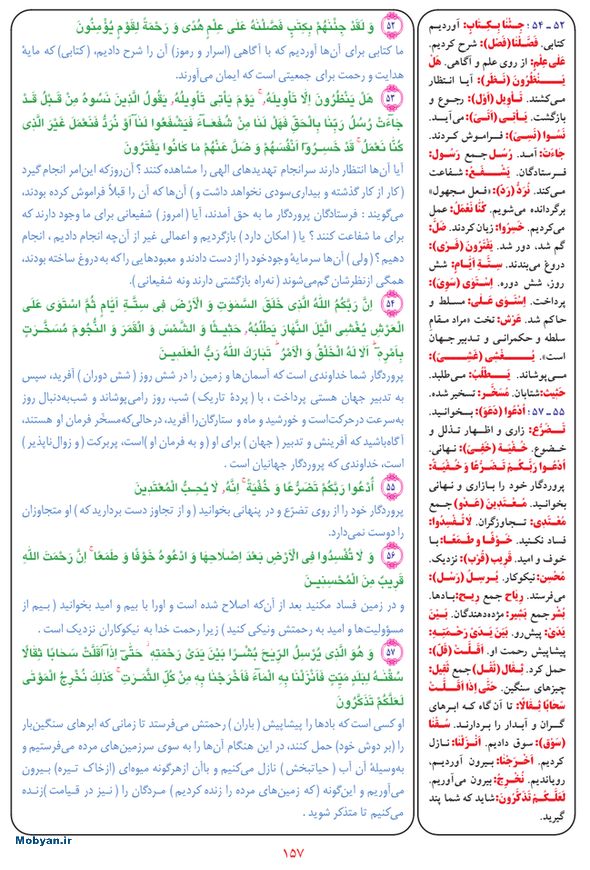 ۵۲ وَ لَقَدْ جِئْنٰهُمْ بِكِتٰبٍ فَصَّلْنٰهُ عَلىٰ عِلْمٍ هُدًى وَ رَحْمَةً لِقَوْمٍ يُؤْمِنُونَ
ما کتابی برای آن‌ها آوردیم که با آگاهی (اسرار و رموز) آن را شرح دادیم، (کتابی) که مایهٔ
هدایت و رحمت برای جمعیتی است که ایمان می‌آورند.
۵۳ هَلْ يَنْظُرُونَ اِلّا تَأْويلَهُ ۚ يَوْمَ يَأْتى تَأْويلُهُ يَقُولُ الَّذينَ نَسُوهُ مِنْ قَبْلُ قَدْ
جاءَتْ رُسُلُ رَبِّنا بِالْحَقِّ فَهَلْ لَنا مِنْ شُفَعاءَ فَيَشْفَعُوا لَنا اَوْ نُرَدُّ فَنَعْمَلَ غَيْرَ الَّذى
كُنّا نَعْمَلُ ۚ قَدْ خَسِرُوا اَنْفُسَهُمْ وَ ضَلَّ عَنْهُمْ ما كانُوا يَفْتَرُونَ
آیا آن‌ها انتظار دارند سرانجام تهدیدهای الهی را مشاهده کنند ؟ آن‌روزکه این‌امر انجام گیرد
(کار از کار گذشته و بیداری‌سودی نخواهد داشت و) آن‌ها که آن را قبلاً فراموش کرده بودند،
می‌گویند : فرستادگان پروردگار ما به حق آمدند، آیا (امروز) شفیعانی برای ما وجود دارند که
برای ما شفاعت کنند ؟ یا (امکان دارد) بازگردیم و اعمالی غیر از آن‌چه انجام دادیم ، انجام
دهیم ؟ (ولی) آن‌ها سرمایهٔ وجودخود را از دست دادند و معبودهایی را که به‌دروغ ساخته بودند،
همگی ازنظرشان گم‌می‌شوند (نه‌راه بازگشتی دارند ونه شفیعانی).
۵۴ اِنَّ رَبَّكُمُ اللّٰهُ الَّذى خَلَقَ السَّمٰوٰتِ وَ الْاَرْضَ فى سِتَّةِ اَيّامٍ ثُمَّ اسْتَوىٰ عَلَى
الْعَرْشِ يُغْشِى الَّيْلَ النَّهارَ يَطْلُبُهُ حَثيثًا وَ الشَّمْسَ وَ الْقَمَرَ وَ النُّجُومَ مُسَخَّرٰتٍ
بِاَمْرِهِ ۗ اَلا لَهُ الْخَلْقُ وَ الْاَمْرُ ۗ تَبارَكَ اللّٰهُ رَبُّ الْعٰلَمينَ
پروردگار شما خداوندی است که آسمان‌ها و زمین را در شش روز (شش دوران) آفرید، سپس
به تدبیر جهان هستی پرداخت ، با (پردهٔ تاریک) شب، روز رامی‌پوشاند و شب‌به‌دنبال روز
به‌سرعت درحرکت‌است و خورشید و ماه و ستارگان‌را آفرید، درحالی‌که‌مسخّر فرمان او هستند،
آگاه‌باشید که آفرینش و تدبیر (جهان) برای او (و به فرمان او) است، پربرکت (و زوال‌ناپذیر)
است، خداوندی که پروردگار جهانیان است .
۵۵ اُدْعُوا رَبَّكُمْ تَضَرُّعًا وَ خُفْيَةً ۚ اِنَّهُ لا يُحِبُّ الْمُعْتَدينَ
پروردگار خود را از روی تضرّع و در پنهانی بخوانید (و از تجاوز دست بردارید که) او متجاوزان
را دوست نمی‌دارد.
۵۶ وَ لا تُفْسِدُوا فِى الْاَرْضِ بَعْدَ اِصْلاحِها وَ ادْعُوهُ خَوْفًا وَ طَمَعًا ۚ اِنَّ رَحْمَتَ اللّٰهِ
قَريبٌ مِنَ الْمُحْسِنينَ
و در زمین فساد مکنید بعد از آن‌که اصلاح شده است و اورا با بیم و امید بخوانید (بیم از
مسؤولیت‌ها و امید به رحمتش ونیکی کنید) زیرا رحمت خدا به نیکوکاران نزدیک است .
۵۷ وَ هُوَ الَّذى يُرْسِلُ الرِّيٰحَ بُشْرًا بَيْنَ يَدَىْ رَحْمَتِهِ ۖ حَتّىٰ اِذا اَقَلَّتْ سَحابًا ثِقالًا
سُقْنٰهُ لِبَلَدٍ مَيِّتٍ فَاَنْزَلْنا بِهِ الْماءَ فَاَخْرَجْنا بِهِ مِنْ كُلِّ الثَّمَرٰتِ ۚ كَذٰلِكَ نُخْرِجُ الْمَوْتىٰ
لَعَلَّكُمْ تَذَكَّرُونَ
او کسی است که بادها را پیشاپیش (باران) رحمتش می‌فرستد تا زمانی که ابرهای سنگین‌بار
را (بر دوش خود) حمل کنند، در این هنگام آن‌ها را به سوی سرزمین‌های مرده می‌فرستیم و
به‌وسیلهٔ آن آب (حیاتبخش) نازل می‌کنیم و باآن ازهرگونه میوه‌ای (ازخاک تیره) بیرون
می‌آوریم و این‌گونه (که زمین‌های مرده را زنده کردیم) مردگان را (نیز در قیامت) زنده
می‌کنیم تا متذکر شوید .
۵۲ ـ ۵۴ : جِئْنا بِكِتابٍ: آوردیم
کتابی. فَصَّلْنا (فَصْل): شرح کردیم.
عَلىٰ عِلْمٍ: از روی علم و آگاهی. هَلْ
يَنْظُرُونَ (نَظَر): آیا انتظار
می‌کشند. تَأْويل (اَوْل): رجوع و
بازگشت. يَأْتى (اَتْى): می‌آید.
نَسُوا (نَسِىَ): فراموش کردند.
جاءَت: آمد. رُسُل جمع رَسُول:
فرستادگان. يَشْفَعُ: شفاعت
می‌کند. نُرَدُّ (رَدّ): «فعل مجهول»
برگردانده می‌شویم. كُنّا نَعْمَلُ: عمل
می‌کردیم. خَسِرُوا: زیان کردند. ضَلَّ:
گم شد، دور شد. يَفْتَرُونَ (فَرْى):
دروغ می‌بندند. سِتَّةِ اَيّام: شش
روز، شش دوره. اِسْتَوىٰ (سَوِىَ):
پرداخت. اِسْتَوىٰ عَلىٰ: مسلط و
حاکم شد. عَرْش: تخت «مراد مقامِ
سلطه و حکمرانی و تدبیر جهان
است». يُغْشِى (غَشْى):
می‌پوشاند. يَطْلُبُ: می‌طلبد.
حَثيث: شتابان. مُسَخَّر: تسخیر شده.
۵۵ ـ ۵۷ : اُدْعُوا (دَعَوَ): بخوانید.
تَضَرُّع: زاری و اظهار تذلل و
خضوع. خُفْيَة (خَفِىَ): نهانی.
اُدْعُوا رَبَّكُمْ تَضَرُّعًا وَ خُفْيَةً:
پروردگار خود را بزاری و نهانی
بخوانید. مُعْتَدينَ (عَدْو) جمع
مُعْتَدى: تجاوزگران. لا تُفْسِدُوا:
فساد نکنید. خَوْفًا وَ طَمَعًا: با
خوف و امید. قَريب (قُرْب): نزدیک.
مُحْسِن: نیکوکار. يُرْسِلُ (رَسْل):
می‌فرستد. رِياح جمع ريح: بادها.
بُشْر جمع بَشير: مژده‌دهندگان. بَيْنَ
يَدَىْ: پیش‌رو. بَيْنَ يَدَىْ رَحْمَتِهِ:
پیشاپیش رحمت او. اَقَلَّتْ (قَلّ):
حمل کرد. ثِقال (ثِقْل) جمع ثَقيل:
چیزهای سنگین. حَتّىٰ اِذا اَقَلَّتْ
سَحابًا ثِقالًا: تا آن گاه که ابرهای
گران و آبدار را بردارند. سُقْنا
(سَوْق): سوق دادیم. اَنْزَلْنا: نازل
کردیم. اَخْرَجْنا: بیرون آوردیم،
رویاندیم. نُخْرِجُ: بیرون می‌آوریم.
لَعَلَّكُمْ تَذَكَّرُونَ: شاید که شما پند
گیرید.
Mobyan.ir
۱۵۷